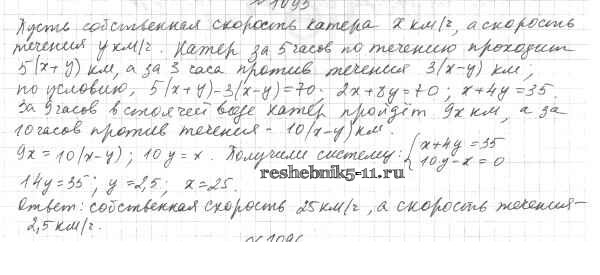 № 1095
Пусть собственная скорость катера x км/ч, а скорость
течения y км/ч. Катер за 5 часов по течению проходит
5(x+y) км, а за 3 часа против течения 3(x-y) км,
по условию, 5(x+y)-3(x-y)=70. 2x+8y=70; x+4y=35.
За 9 часов в стоячей воде катер пройдёт 9x км, а за
10 часов против течения - 10(x-y) км.
9x = 10(x-y); 10y = x. Получили систему: { x+4y=35
10y-x=0
14y=35; y=2,5; x=25.
reshebnik5-11.ru
Ответ: собственная скорость 25 км/ч, а скорость течения-
2,5 км/ч.